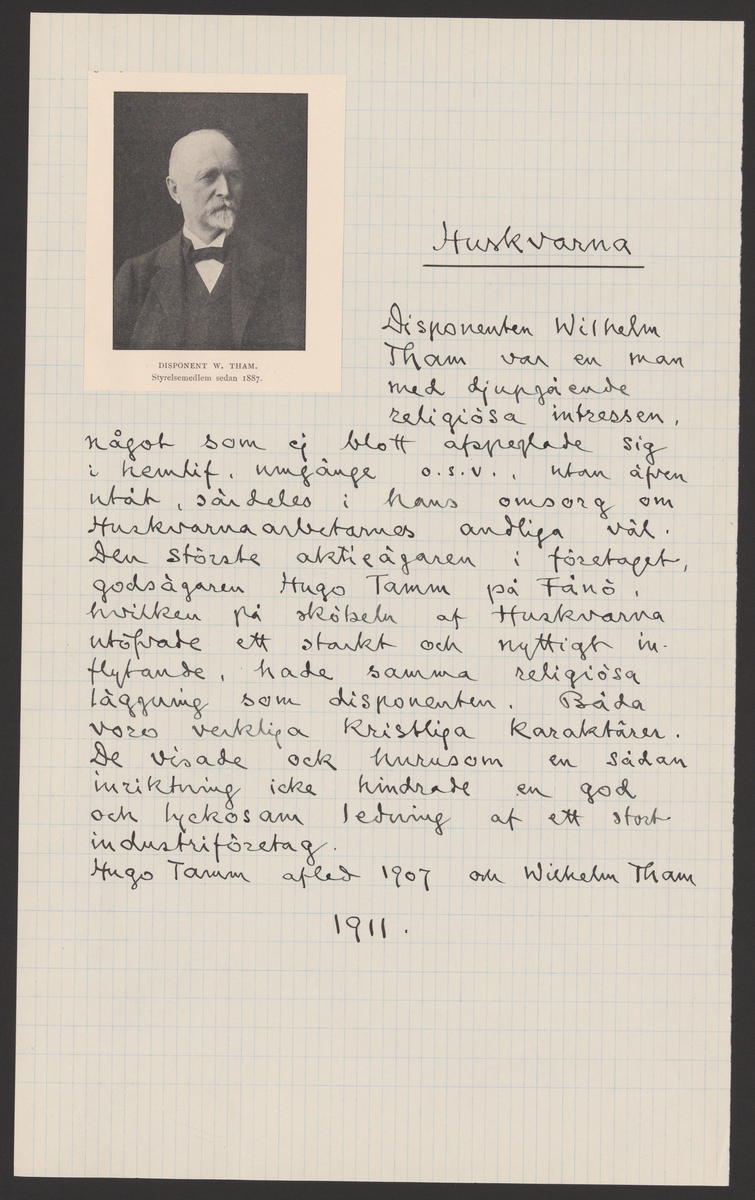 DISPONENT W. THAM.
Styrelsemedlem sedan 1887.
Huskvarna
Disponenten Wilhelm
Tham var en man
med djupgående
religiösa intressen,
något som ej blott afspeglade sig
i hemlif, umgänge o.s.v., utan äfven
utåt, särdeles i hans omsorg om
Huskvarnaarbetarnes andliga väl.
Den störste aktieägaren i företaget,
godsägaren Hugo Tamm på Fånö,
hvilken på skötseln af Huskvarna
utöfvade ett starkt och nyttigt in-
flytande, hade samma religiösa
läggning som disponenten. Båda
voro verkliga kristliga karaktärer.
De visade ock hurusom en sådan
inriktning icke hindrade en god
och lyckosam ledning af ett stort
industriföretag.
Hugo Tamm afled 1907 och Wilhelm Tham
1911.